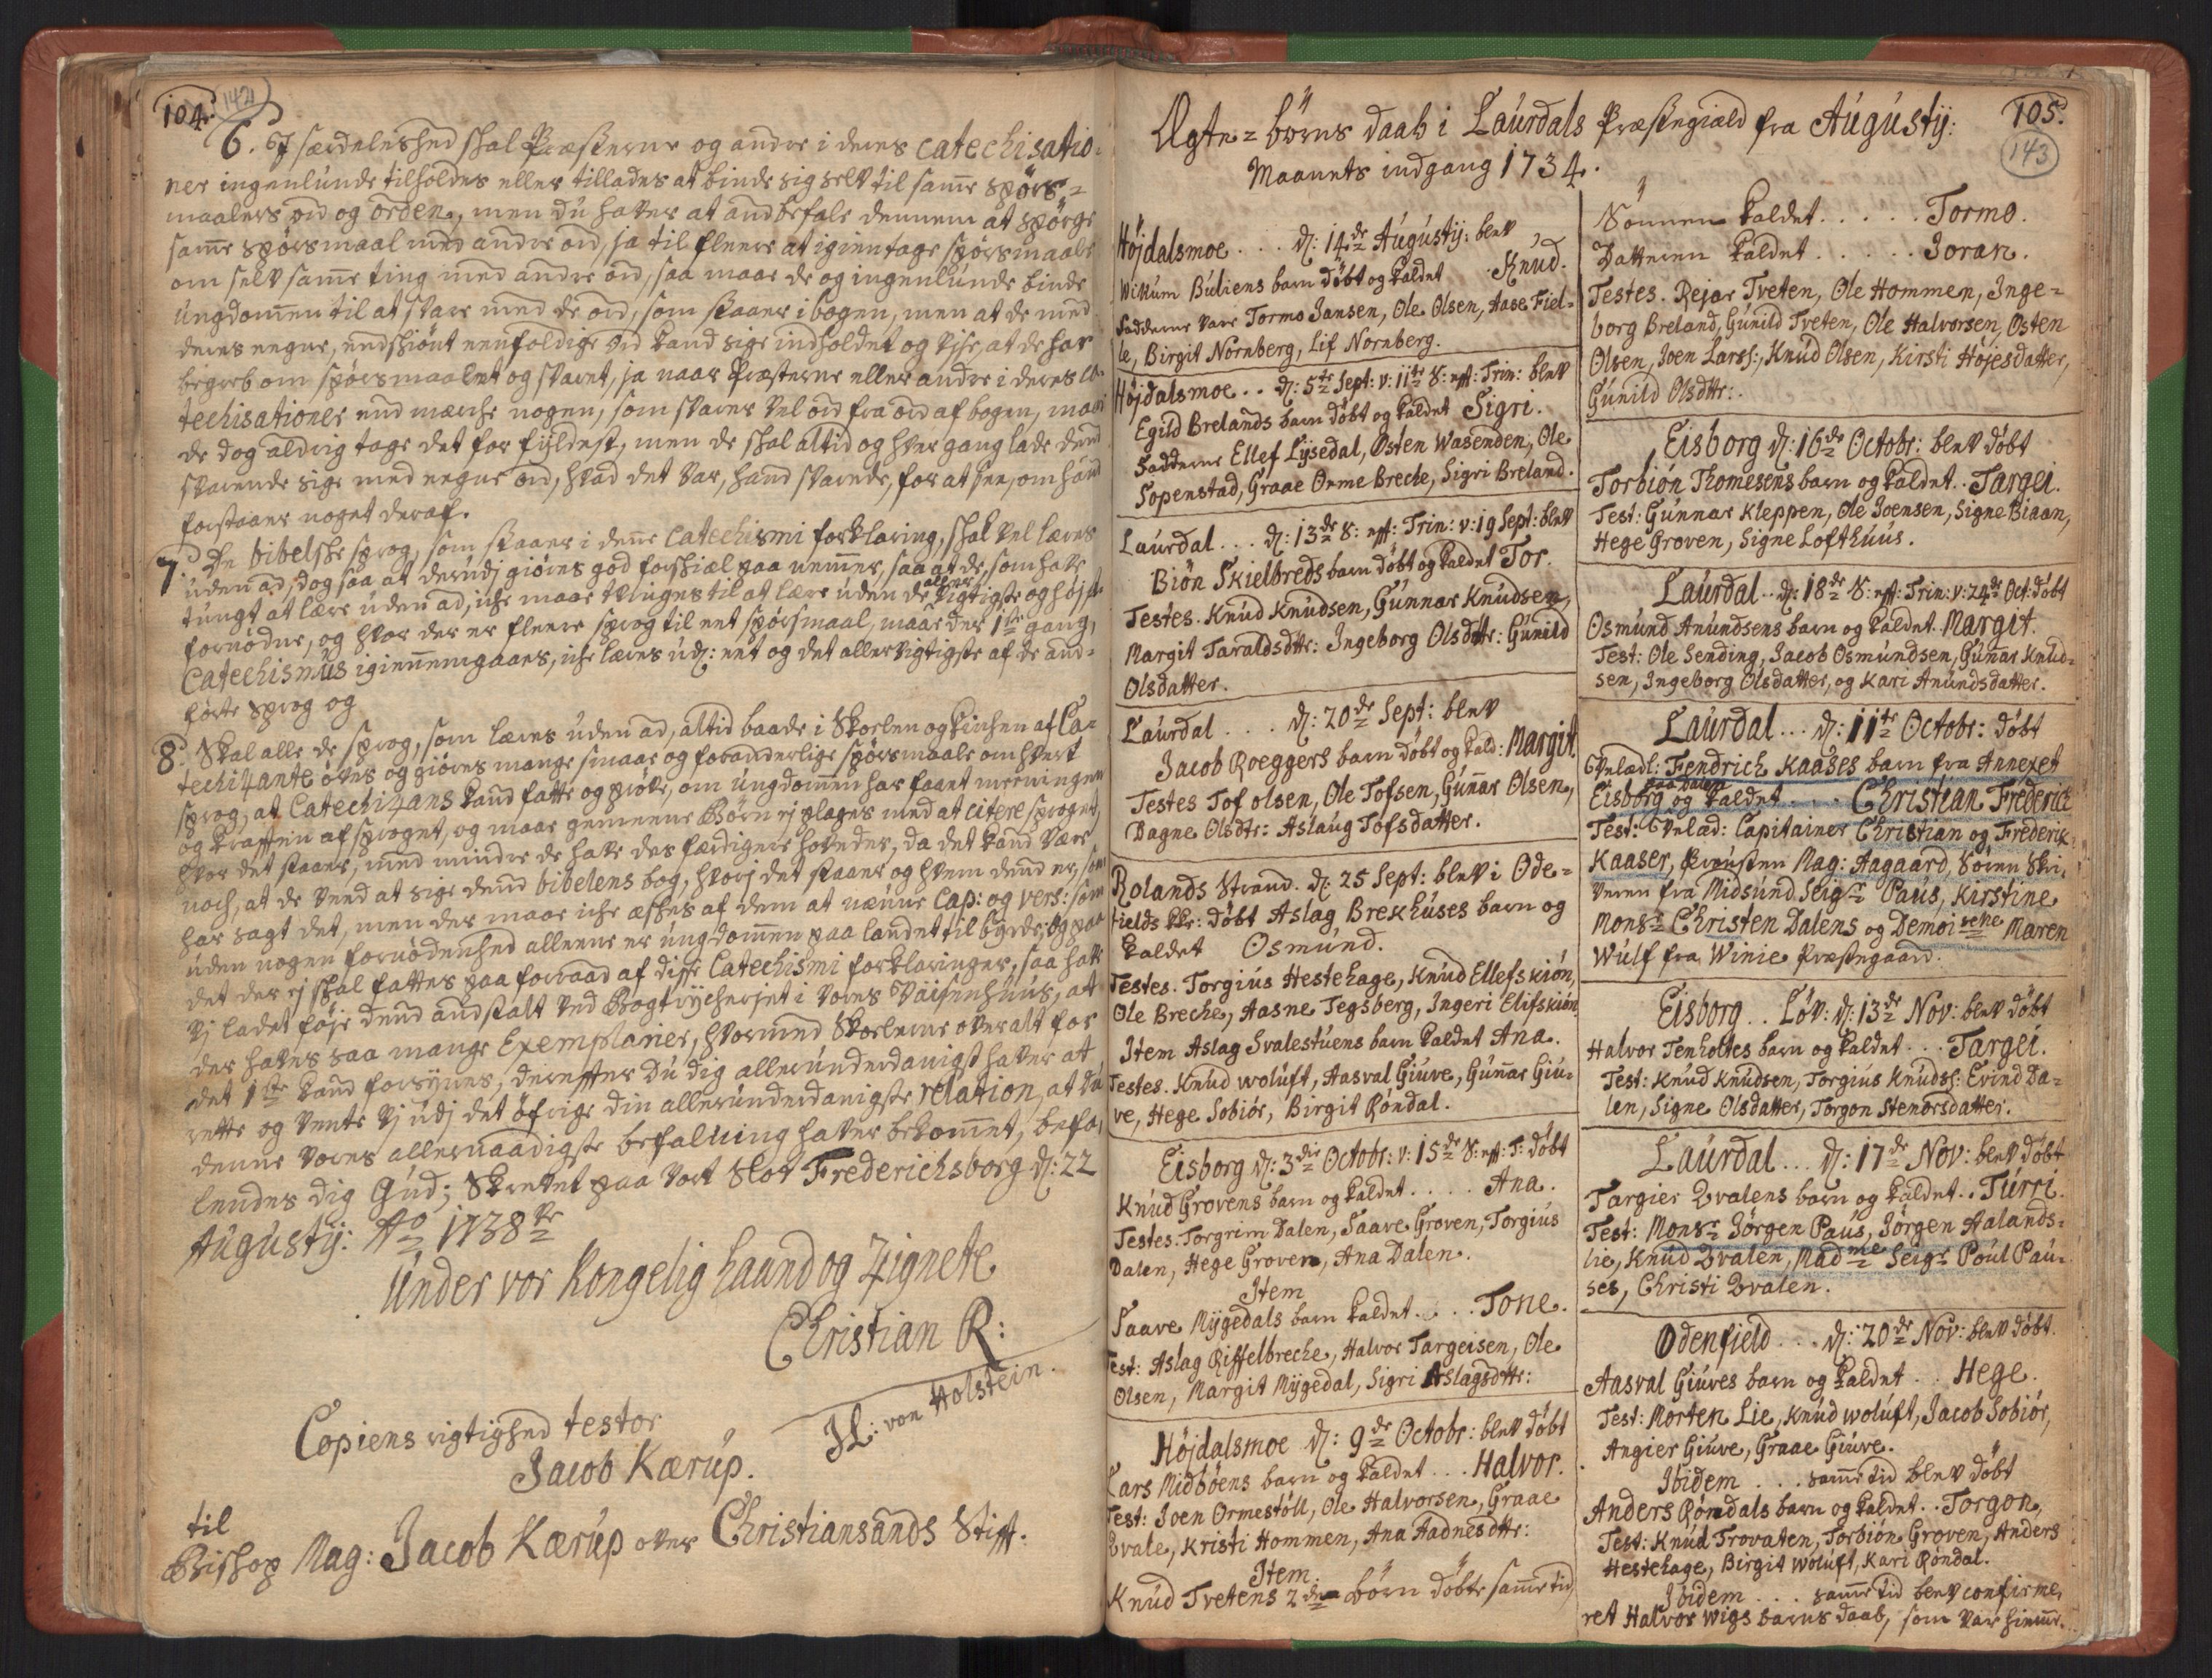 104. 142
6. I særdeleshed skal Præsterne og andre i deres catechisatio-
ner ingenlunde tilholdes eller tillades at binde sig selv til samme spørs-
maalers ord og orden, men du haver at andbefale dennem at spørge
samme spørsmaal med andre ord, ja til fleere at igientage spørsmaale
om selv samme ting med andre ord, saa maae de og ingenlunde binde
ungdommen til at svare med de ord, som staaer i bogen, men at de med
deres eegne, endskiönt eenfoldige ord kand sige indholdet og vise, at de har
begreb om spørsmaalet og svaret, ja naar Præsterne eller andre i deres ca-
techisationer end mærche nogen, som svarer vel ord fra ord af bogen, maae
de dog aldrig tage det for fyldest, men de skal altid og hver gang lade dend
svarende sige med eegne ord, hvad det var, hand svarede, for at see, om hand
forstaaer noget deraf.
7. De bibelske sprog, som staaer i denne Catechismi forklaring, skal vel læres
uden ad, dog saa at derudj giøres god forskiæl paa nemmer, saa at de, som have
tungt at lære uden ad, iche maae tvinges til at lære uden de aller vigtigste og højst
fornødne, og hvor der er fleere sprog til eet spørsmaal, maae der 1ste gang,
Catechismus igiennemgaaes, iche læres ud: eet og det allervigtigste af de and-
førte sprog og
8. Skal alle de sprog, som læres uden ad, altid baade i Skoelen og Kirchen af Ca-
techizante öves og giöres mange smaae og foranderlige spørsmaale om hvert
sprog, at Catechizans kand fatte og pröve, om ungdommen har faaet meeningen
og krafften af sproget, og maae gemeene Børn ej plages med at citere sproget,
hvor det staaer, med mindre de have des færdigere hoveder, da det kand være
noch, at de veed at sige dend bibelens bog, hvorj det staaer og hvem dend er, som
har sagt det, men der maae iche æskes af dem at nævne Cap: og vers: som
uden nogen fornödenhed alleene er ungdommen paa landet til byrde; og paa
det der ej skal fattes paa forraad af disse Catechismi forklaringer, saa have
vj ladet føje dend andstalt ved Bogtrycheriet i vores Väisenhuus, at
der haves saa mange Exemplarier, hvormed Skoelerne overalt for
det 1ste kand forsynes, dereffter du dig allerunderdanigst haver at
rette og vente vj udj det öfrige din allerunderdanigste relation, at du
denne vores allernaadigste befaluing haver bekommet, befa-
lendes dig Gud; Skrevet paa vort Slot Frederichsborg d: 22
Augustij: Ao 1738te
Under vor Kongelig haand og Zignete
Christian R:
JL: von Holstein.
Copiens rigtighed testor
Jacob Kærup.
til
Bishop Mag: Jacob Kærup over Christiansands Stift.
Ægte-börns daab i Laurdals Præstegiæld fra Augustij:
Maanets indgang 1734.
105. 143
Höjdalsmoe . . . d: 14de Augustij: blev
Wikum Buliens barn døbt og kaldet Knud.
Fadderne vare Tormo Jansen, Ole Olsen, Aase Fiel-
le, Birgit Nornberg, Lif Nornberg.
Höjdalsmoe . . d: 5te Sept: v: 11te S: eft: Trin: blev
Egild Brelands barn døbt og kaldet Sigri.
Fadderne Ellef Lysedal, Østen Wasenden, Ole
Sopenstad, Graae Orme Breche, Sigri Breland.
Laurdal . . . d: 13de S: eft: Trin: v: 19 Sept: blev
Biön Skielbreds barn døbt og kaldet Tor.
Testes. Knud Knudsen, Gunnar Knudsen,
Margit Taraldsdttr: Ingeborg Olsdttr: Gunild
Olsdatter.
Laurdal . . . d: 20de Sept: blev
Jacob Roeggers barn døbt og kald: Margit.
Testes Tof olsen, Ole Tofsen, Gunnar Olsen,
Dagne Olsdtr: Aslaug Tofsdatter.
Rolands Strand. d: 25 Sept: blev i Ode-
fields kr: døbt Aslag Brekhuses barn og
kaldet Osmund.
Testes. Torgius Hestehage, Knud Ellefskión,
Ole Breche, Aasne Tegsberg, Ingeri Elifskión
Item Aslag Svalestuens barn kaldet Ana.
Testes. Knud woluft, Aasval Giuve, Gunnar Giu-
ve, Hege Sobiör, Birgit Röndal.
Eisborg d: 3die Octobr: v: 15de S: eft: T: døbt
Knud Grovens barn og kaldet . . . . Ana.
Testes. Torgrim Dalen, Saave Groven, Torgius
Dalen, Hege Groven, Ana Dalen.
Item
Saave Mygedals barn kaldet . . . . Tone.
Test: Aslag Riffelbreche, Halvor Targeisen, Ole
Olsen, Margit Mygedal, Sigri Aslagsdttr:
Höjdalsmoe d: 9de Octobr: blev døbt
Lars Midböens barn og kaldet . . . Halvor.
Test: Joen Ormestöll, Ole Halvorsen, Graae
Qvale, Kristi Hommen, Ana Aadnesdttr:
Item.
Knud Tvetens 2de börn døbte samme tid
Sönnen kaldet . . . . . Tormo.
Datteren kaldet . . . . . Joran.
Testes. Rejar Tveten, Ole Hommen, Inge-
borg Breland, Gunild Tveten, Ole Halvorsen, Østen
Olsen, Joen Larss:, Knud Olsen, Kirsti Höjesdatter,
Gunild Olsdttr:.
Eisborg d: 16de Octobr: blev døbt
Torbiön Thomesens barn og kaldet . . Targei.
Test: Gunnar Kleppen, Ole Joensen, Signe Biaan,
Hege Groven, Signe Lofthuus.
Laurdal . . d: 18de S: eft: Trin: v: 24de Oct: døbt
Osmund Anundsens barn og kaldet. Margit.
Test: Ole Sending, Jacob Osmundsen, Gunar Knud-
sen, Ingeborg Olsdatter, og Kari Anundsdatter.
Laurdal . . . d: 11te Octobr: døbt
Velædl: Fendrich Kaases barn fra Annexet
Eisborg og kaldet . . . Christian Frederic
Test: Velæd: Capitainer Christian og Frederik
Kaaser, Provsten Mag: Aagaard, Soren Skri-
veren fra Midsund, Seigr Paus, Kirstine
Monsr Christen Dalens og Demoiselle Maren
Wulf fra Winie Præstegaard.
Eisborg . . Löv: d: 13de Nov: blev døbt
Halvor Tenholtes barn og kaldet . . . Targei.
Test: Knud Knudsen, Torgius Knudss: Evind Da-
len, Signe Olsdatter, Torgon Stenorsdatter.
Laurdal . . . d: 17de Nov: blev døbt
Targier Qvalens barn og kaldet . . Turri.
Test: Monsr Jörgen Paus, Jörgen Aalands-
lie, Knud Qvalen, Madme Seigr Poul Pau-
ses, Christi Qvalen.
Odenfield . . . d: 20de Nov: blev døbt.
Aasval Giuves barn og kaldet . . Hege.
Test: Morten Lie, Knud woluft, Jacob Sobiör,
Angier Giuve, Graae Giuve.
Ibidem . . . samme tid blev døbt
Anders Röndals barn og kaldet . . Torgon,
Test: Knud Trovaten, Torbiön Groven, Anders
Hestehage, Birgit woluft, Kari Röndal.
Ibidem . . . samme tid blev confirme-
ret Halvor Wigs barns daab, som var hiemme-